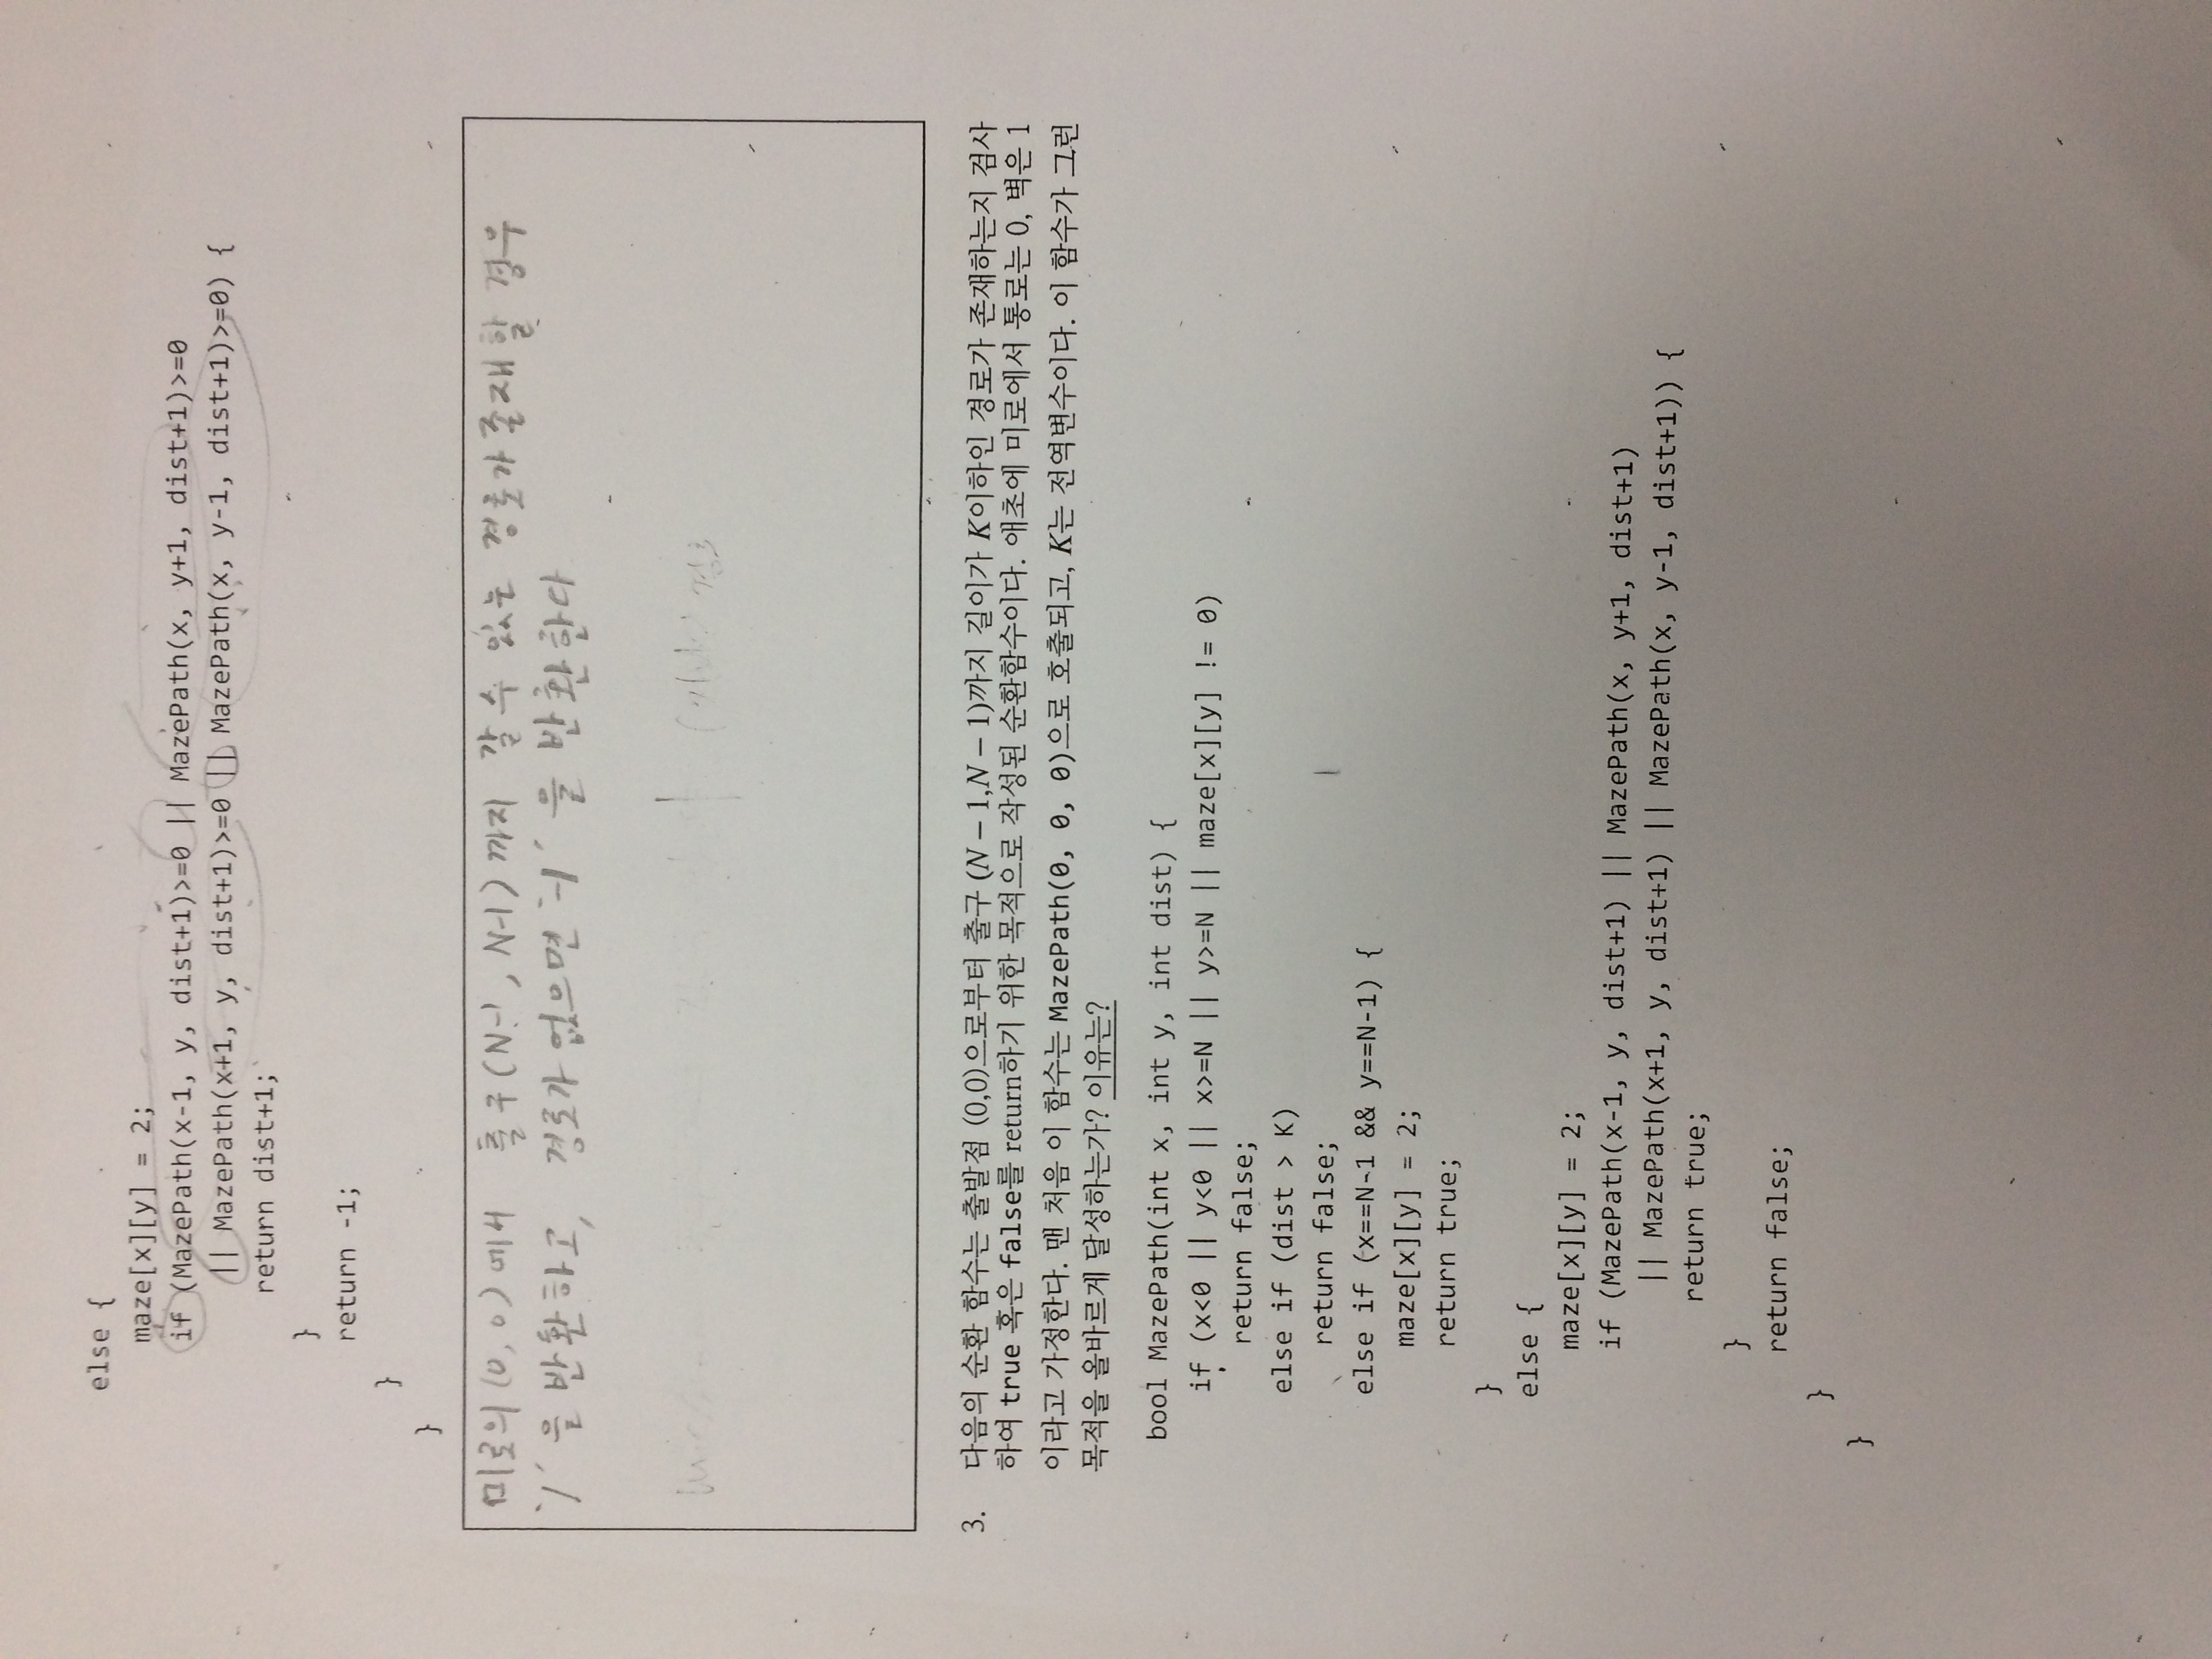 else {
maze[x][y] = 2;
if (MazePath(x-1, y, dist+1)>=0 || MazePath(x, y+1, dist+1)>=0
|| MazePath(x+1, y, dist+1)>=0 || MazePath(x, y-1, dist+1)>=0) {
return dist+1;
}
return -1;
}
}
미로의 (0, 0) 에서 출구 (N-1, N-1) 까지 갈 수 있는 경로가 존재할 경우
'1' 을 반환하고, 경로가 없으면 '-1' 을 반환한다
경로
3. 다음의 순환 함수는 출발점 (0,0)으로부터 출구 (N − 1,N − 1)까지 길이가 K이하인 경로가 존재하는지 검사
하여 true 혹은 false를 return하기 위한 목적으로 작성된 순환함수이다. 애초에 미로에서 통로는 0, 벽은 1
이라고 가정한다. 맨 처음 이 함수는 MazePath(0, 0, 0)으로 호출되고, K는 전역변수이다. 이 함수가 그런
목적을 올바르게 달성하는가? 이유는?
bool MazePath(int x, int y, int dist) {
if (x<0 || y<0 || x>=N || y>=N || maze[x][y] != 0)
return false;
else if (dist > K)
return false;
else if (x==N-1 && y==N-1) {
maze[x][y] = 2;
return true;
}
else {
maze[x][y] = 2;
if (MazePath(x-1, y, dist+1) || MazePath(x, y+1, dist+1)
|| MazePath(x+1, y, dist+1) || MazePath(x, y-1, dist+1)) {
return true;
}
return false;
}
}